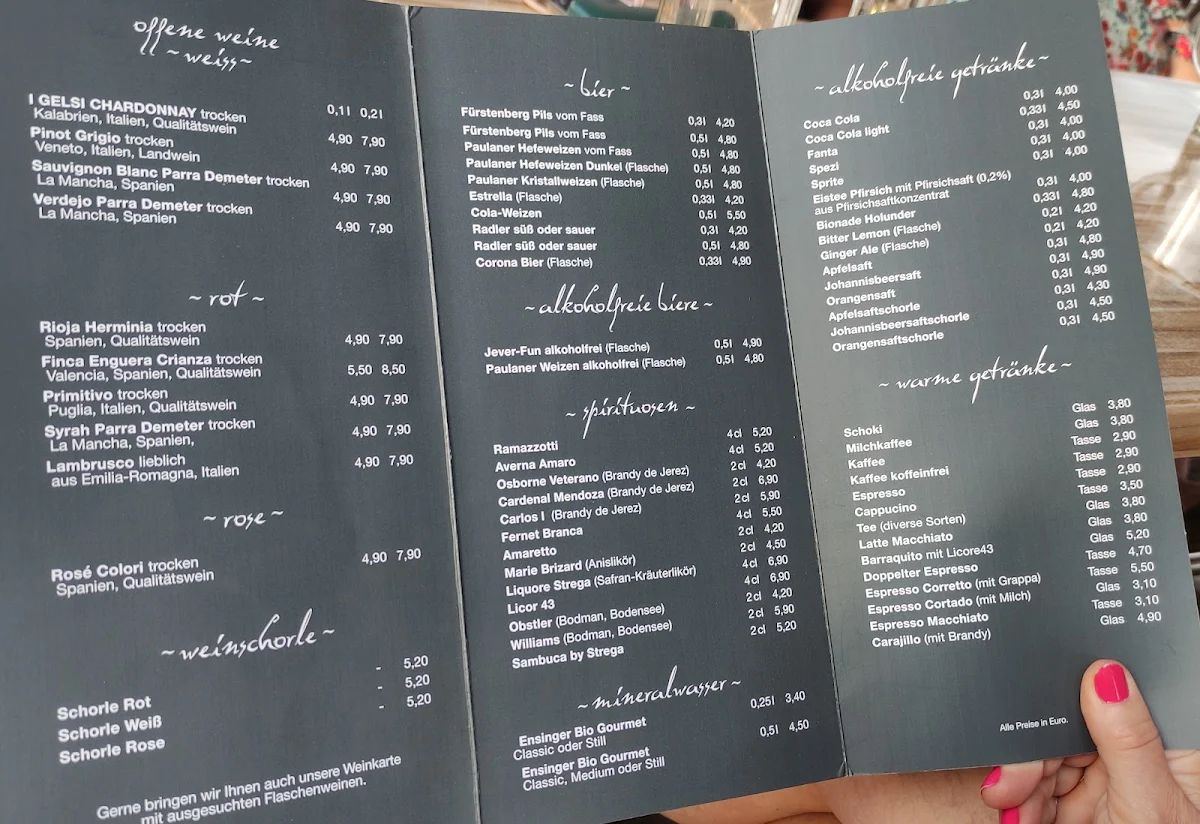 offene weine
~ weiss ~
0,1l 0,2l
I GELSI CHARDONNAY trocken 4,90 7,90
Kalabrien, Italien, Qualitätswein
Pinot Grigio trocken 4,90 7,90
Veneto, Italien, Landwein
Sauvignon Blanc Parra Demeter trocken 4,90 7,90
La Mancha, Spanien
Verdejo Parra Demeter trocken 4,90 7,90
La Mancha, Spanien
~ rot ~
Rioja Herminia trocken 4,90 7,90
Spanien, Qualitätswein
Finca Enguera Crianza trocken 5,50 8,50
Valencia, Spanien, Qualitätswein
Primitivo trocken 4,90 7,90
Puglia, Italien, Qualitätswein
Syrah Parra Demeter trocken 4,90 7,90
La Mancha, Spanien,
Lambrusco lieblich 4,90 7,90
aus Emilia-Romagna, Italien
~ rose ~
Rosé Colori trocken 4,90 7,90
Spanien, Qualitätswein
~ weinschorle ~
Schorle Rot - 5,20
Schorle Weiß - 5,20
Schorle Rose - 5,20
Gerne bringen wir Ihnen auch unsere Weinkarte
mit ausgesuchten Flaschenweinen.
~ bier ~
Fürstenberg Pils vom Fass 0,3l 4,20
Fürstenberg Pils vom Fass 0,5l 4,80
Paulaner Hefeweizen vom Fass 0,5l 4,80
Paulaner Hefeweizen Dunkel (Flasche) 0,5l 4,80
Paulaner Kristallweizen (Flasche) 0,5l 4,80
Estrella (Flasche) 0,33l 4,20
Cola-Weizen 0,5l 5,50
Radler süß oder sauer 0,3l 4,20
Radler süß oder sauer 0,5l 4,80
Corona Bier (Flasche) 0,33l 4,90
~ alkoholfreie biere ~
Jever-Fun alkoholfrei (Flasche) 0,5l 4,90
Paulaner Weizen alkoholfrei (Flasche) 0,5l 4,80
~ spirituosen ~
Ramazzotti 4cl 5,20
Averna Amaro 4cl 5,20
Osborne Veterano (Brandy de Jerez) 2cl 4,20
Cardenal Mendoza (Brandy de Jerez) 2cl 6,90
Carlos I (Brandy de Jerez) 2cl 5,90
Fernet Branca 4cl 5,50
Amaretto 2cl 4,20
Marie Brizard (Anislikör) 2cl 4,50
Liquore Strega (Safran-Kräuterlikör) 4cl 6,90
Licor 43 4cl 6,90
Obstler (Bodman, Bodensee) 2cl 4,20
Williams (Bodman, Bodensee) 2cl 5,90
Sambuca by Strega 2cl 5,20
~ mineralwasser ~
Ensinger Bio Gourmet 0,25l 3,40
Classic oder Still
Ensinger Bio Gourmet 0,5l 4,50
Classic, Medium oder Still
~ alkoholfreie getränke ~
Coca Cola 0,3l 4,00
Coca Cola light 0,33l 4,50
Fanta 0,3l 4,00
Spezi 0,3l 4,00
Sprite 0,3l 4,00
Eistee Pfirsich mit Pfirsichsaft (0,2%) 0,3l 4,00
aus Pfirsichsaftkonzentrat
Bionade Holunder 0,33l 4,80
Bitter Lemon (Flasche) 0,2l 4,20
Ginger Ale (Flasche) 0,2l 4,20
Apfelsaft 0,3l 4,80
Johannisbeersaft 0,3l 4,90
Orangensaft 0,3l 4,90
Apfelsaftschorle 0,3l 4,30
Johannisbeersaftschorle 0,3l 4,50
Orangensaftschorle 0,3l 4,50
~ warme getränke ~
Schoki Glas 3,80
Milchkaffee Glas 3,80
Kaffee Tasse 2,90
Kaffee koffeinfrei Tasse 2,90
Espresso Tasse 2,90
Cappucino Tasse 3,50
Tee (diverse Sorten) Glas 3,80
Latte Macchiato Glas 3,80
Barraquito mit Licore43 Glas 5,20
Doppelter Espresso Tasse 4,70
Espresso Corretto (mit Grappa) Tasse 5,50
Espresso Cortado (mit Milch) Glas 3,10
Espresso Macchiato Tasse 3,10
Carajillo (mit Brandy) Glas 4,90
Alle Preise in Euro.